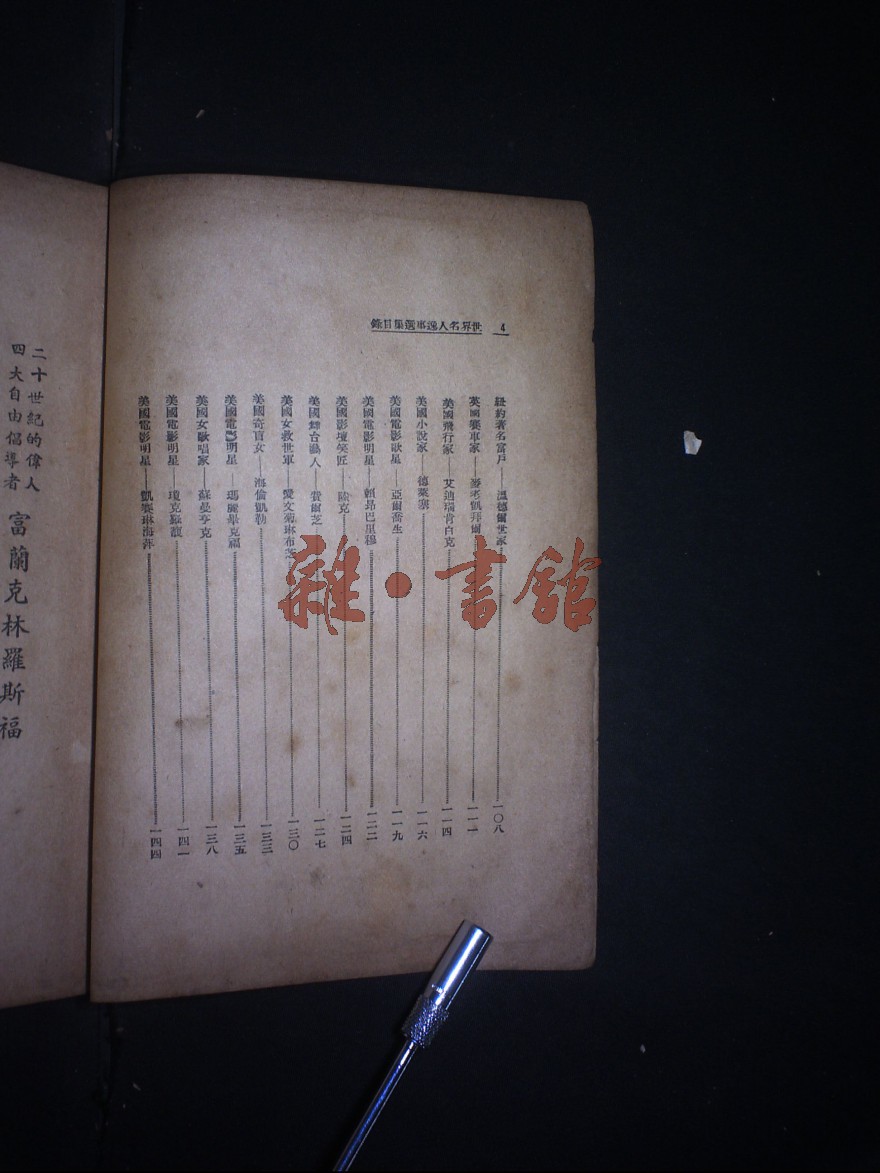 4 世界名人逸事選集目錄
紐約著名富戶——溫德爾世家 一〇八
英國賽車家——游考凱拜爾 一一一
美國飛行家——艾迪瑞肯白克 一一四
美國小說家——德萊塞 一一六
美國電影歌星——亞爾喬生 一一九
美國電影明星——賴昂巴里穆 一二二
美國影壇笑匠——陸克 一二四
美國舞台鴻人——費爾芝 一二七
美國女救世軍——愛文菊琳布芝 一三〇
美國奇盲女——海倫凱勒 一三三
美國電影明星——瑪麗畢克福 一三五
美國女歌唱家——蘇曼亨克 一三八
美國電影明星——瓊克羅馥 一四一
美國電影明星——凱賽琳海萍 一四四
二十世紀的偉人
四大自由倡導者
富蘭克林羅斯福
雜·書館